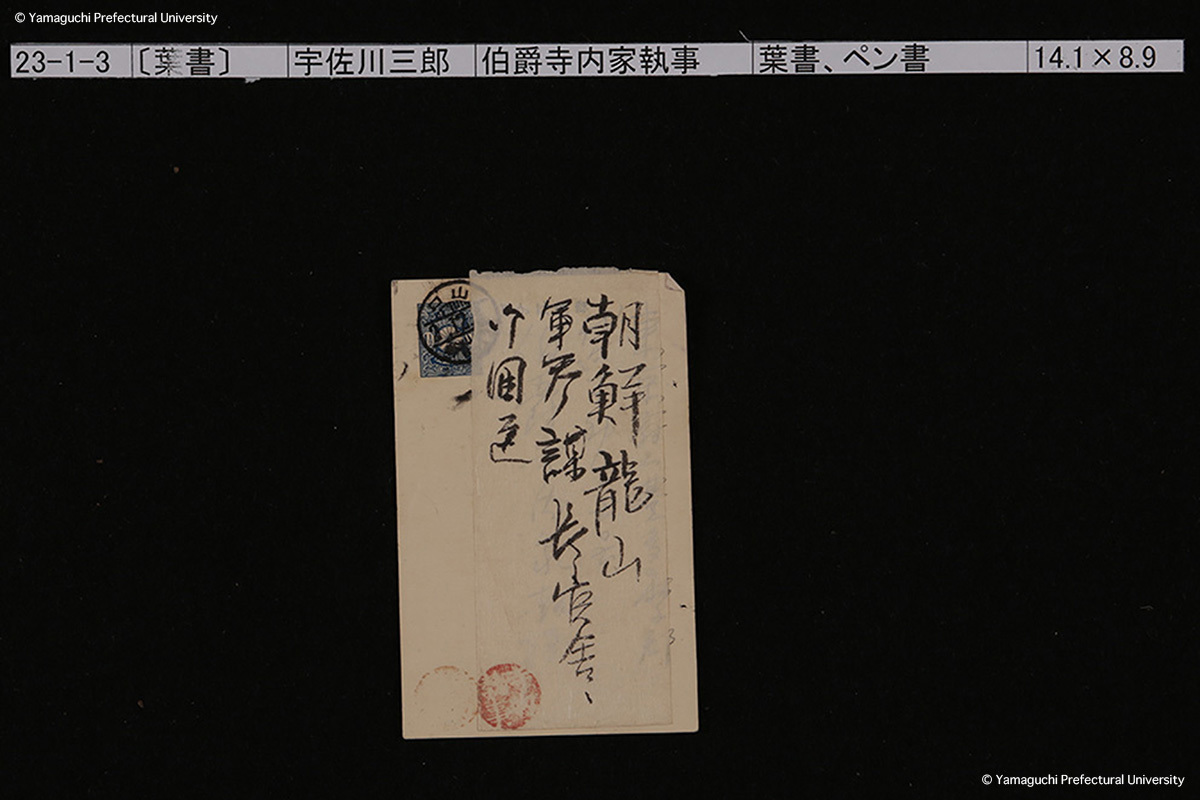 © Yamaguchi Prefectural University
23-1-3 〔葉書〕 宇佐川三郎 伯爵寺内家執事 葉書、ペン書 14.1×8.9
朝鮮龍山
軍参謀長官舎
回送
山
© Yamaguchi Prefectural University